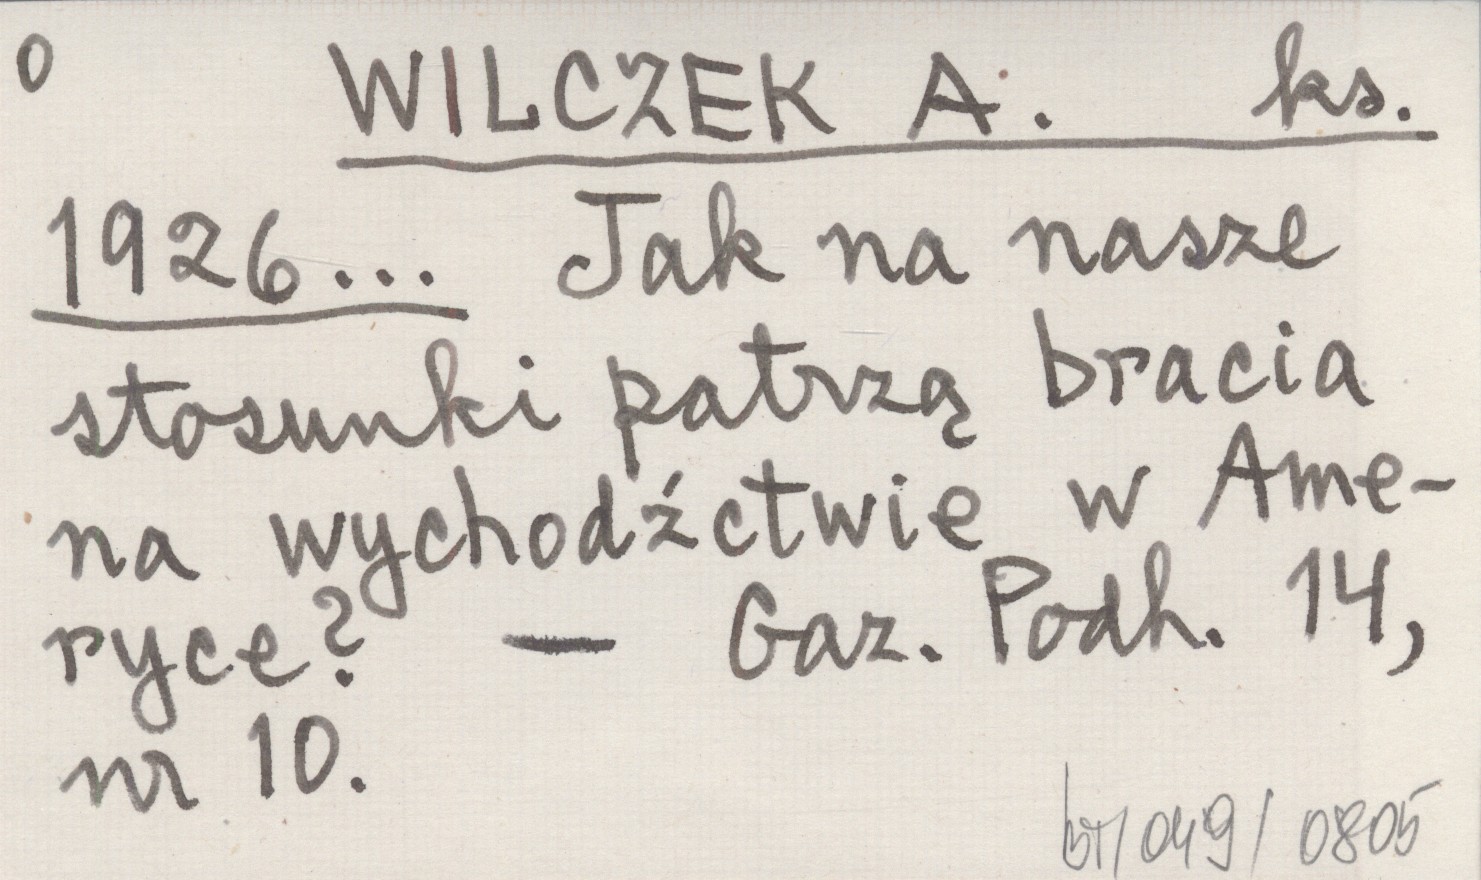 0 WILCZEK A. ks.
1926... Jak na nasze
stosunki patrzą bracia
na wychodźctwie w Ame-
ryce? — Gaz. Podh. 14,
nr 10.
br/049/0805